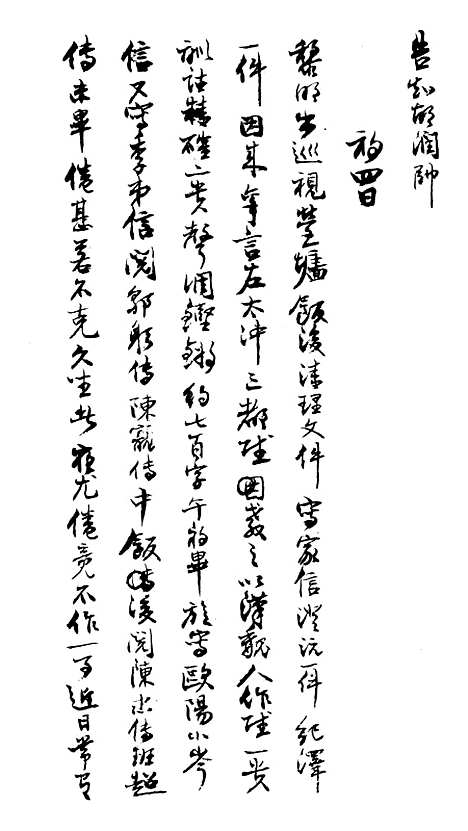 告知胡潤帥
初四日
黎明出巡視營牆飯後清理文件寫家信澄沅一件紀澤
一件因來字言左太沖三都賦因教之以漢魏人作賦一貴
訓詁精確一貴聲調鏗鏘約七百字午初畢旋寫歐陽小岑
信又寫季弟信閱郭躬傳陳寵傳中飯後閱陳忠傳班超
傳未畢倦甚若不克久坐此夜尤倦竟不作一事近日常有